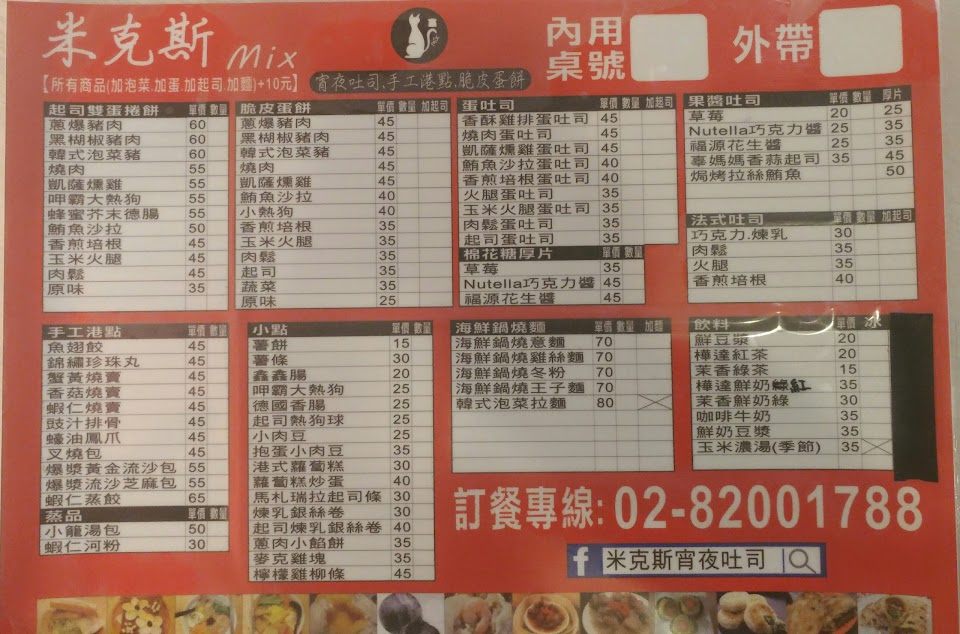 米克斯 Mix
【所有商品(加泡菜.加蛋.加起司.加麵)+10元】
宵夜吐司.手工港點.脆皮蛋餅
內用桌號
外帶
起司雙蛋捲餅 單價 數量
蔥爆豬肉 60
黑椒豬肉 60
韓式泡菜豬 60
燒肉 55
凱薩燻雞 55
呷霸大熱狗 55
蜂蜜芥末德腸 55
鮪魚沙拉 50
香煎培根 45
玉米火腿 45
肉鬆 45
原味 35
脆皮蛋餅 單價 數量 加起司
蔥爆豬肉 45
黑胡椒豬肉 45
韓式泡菜豬 45
燒肉 45
凱薩燻雞 45
鮪魚沙拉 40
小熱狗 40
香煎培根 35
玉米火腿 35
肉鬆 35
起司 35
蔬菜 35
原味 25
蛋吐司 單價 數量 加起司
香酥雞排蛋吐司 45
燒肉蛋吐司 45
凱薩燻雞蛋吐司 45
鮪魚沙拉蛋吐司 40
香煎培根蛋吐司 40
火腿蛋吐司 35
玉米火腿蛋吐司 35
肉鬆蛋吐司 35
起司蛋吐司 35
棉花糖厚片 單價 數量
草莓 35
Nutella巧克力醬 45
福源花生醬 45
果醬吐司 單價 數量 厚片
草莓 20 25
Nutella巧克力醬 25 35
福源花生醬 25 35
辜媽媽香蒜起司 35 45
焗烤拉絲鮪魚 50
法式吐司 單價 數量 加起司
巧克力.煉乳 30
肉鬆 35
火腿 35
香煎培根 40
手工港點 單價 數量
魚翅餃 45
錦繡珍珠丸 45
蟹黃燒賣 45
香菇燒賣 45
蝦仁燒賣 45
豉汁排骨 45
蠔油鳳爪 45
叉燒包 45
爆漿黃金流沙包 55
爆漿流沙芝麻包 55
蝦仁蒸餃 65
蒸品 單價 數量
小籠湯包 50
蝦仁河粉 30
小點 單價 數量
薯餅 15
薯條 30
鑫鑫腸 20
呷霸大熱狗 25
德國香腸 25
起司熱狗球 25
小肉豆 25
抱蛋小肉豆 35
港式蘿蔔糕 30
蘿蔔糕炒蛋 40
馬札瑞拉起司條 30
煉乳銀絲卷 30
起司煉乳銀絲卷 40
蔥肉小餡餅 35
麥克雞塊 35
檸檬雞柳條 45
海鮮鍋燒麵 單價 數量 加麵
海鮮鍋燒意麵 70
海鮮鍋燒雞絲麵 70
海鮮鍋燒冬粉 70
海鮮鍋燒王子麵 70
韓式泡菜拉麵 80
飲料 單價 冰
鮮豆漿 20
樺達紅茶 20
茉香綠茶 15
樺達鮮奶 紅 35
茉香鮮奶綠 30
咖啡牛奶 35
鮮奶豆漿 35
玉米濃湯(季節) 35
訂餐專線: 02-82001788
f 米克斯宵夜吐司